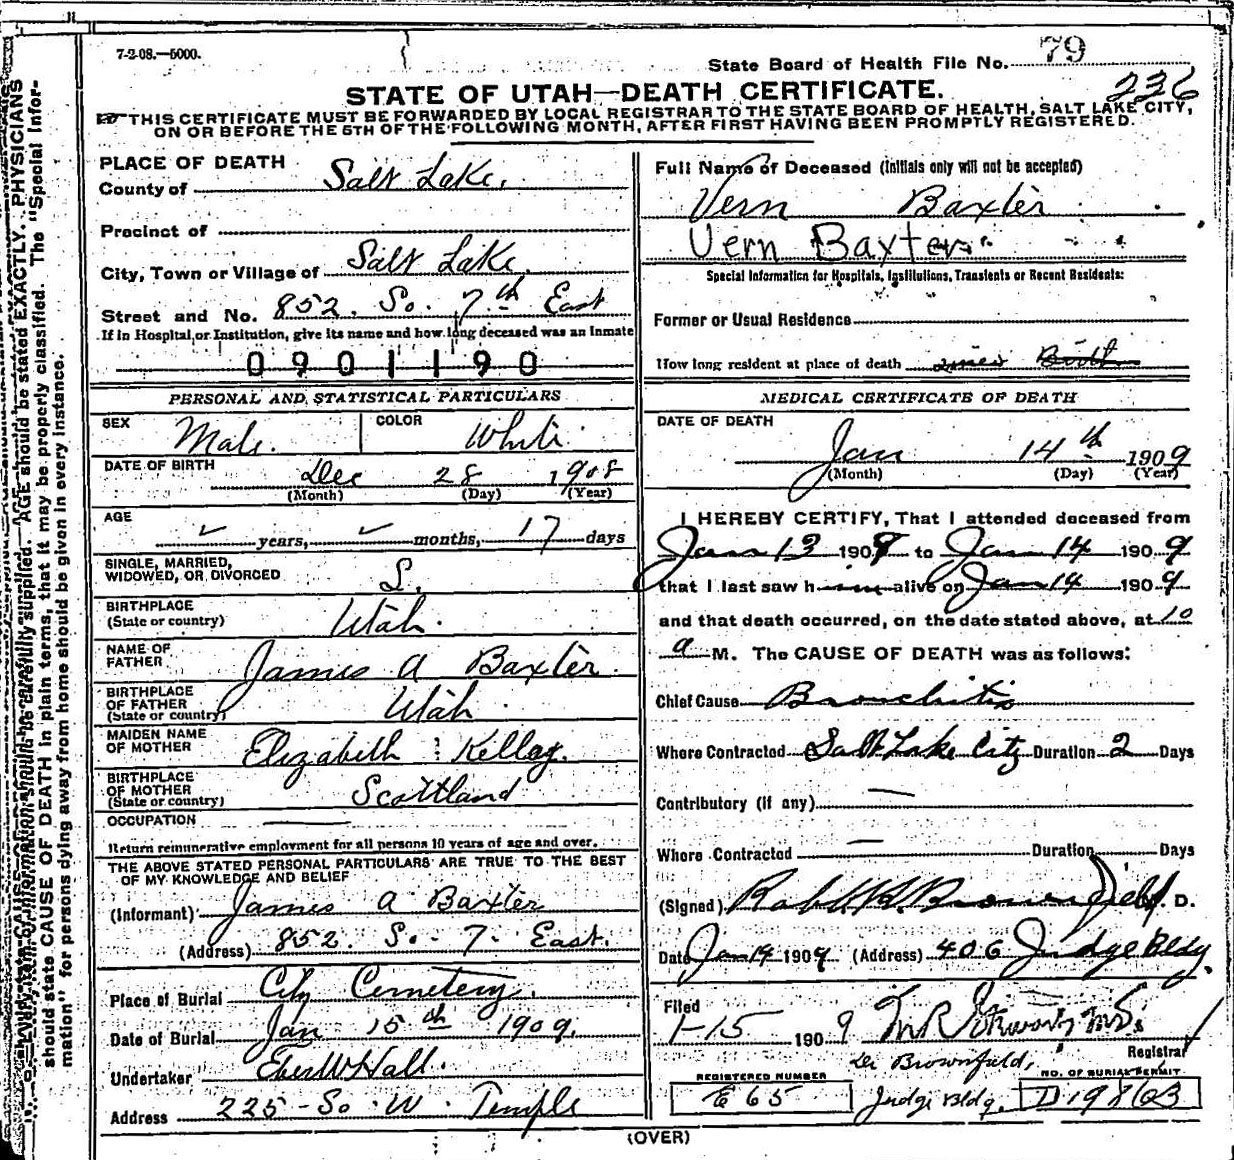 7-2-08.—5000.
State Board of Health File No. 79
236
STATE OF UTAH—DEATH CERTIFICATE.
THIS CERTIFICATE MUST BE FORWARDED BY LOCAL REGISTRAR TO THE STATE BOARD OF HEALTH, SALT LAKE CITY,
ON OR BEFORE THE 5TH OF THE FOLLOWING MONTH, AFTER FIRST HAVING BEEN PROMPTLY REGISTERED.
PLACE OF DEATH
County of Salt Lake.
Precinct of
City, Town or Village of Salt Lake.
Street and No. 852. So. 7th East
If in Hospital or Institution, give its name and how long deceased was an Inmate
0901190
PERSONAL AND STATISTICAL PARTICULARS
SEX Male. COLOR White.
DATE OF BIRTH Dec 28 1908
(Month) (Day) (Year)
AGE years, months, 17 days
SINGLE, MARRIED,
WIDOWED, OR DIVORCED S.
BIRTHPLACE
(State or country) Utah.
NAME OF
FATHER James A Baxter.
BIRTHPLACE
OF FATHER
(State or country) Utah.
MAIDEN NAME
OF MOTHER Elizabeth Kelley.
BIRTHPLACE
OF MOTHER
(State or country) Scottland
OCCUPATION
Return remunerative employment for all persons 10 years of age and over.
THE ABOVE STATED PERSONAL PARTICULARS ARE TRUE TO THE BEST
OF MY KNOWLEDGE AND BELIEF
(Informant) James A Baxter
(Address) 852. So. 7. East.
Place of Burial City Cemetery.
Date of Burial Jan 15th 1909.
Undertaker Eber W Hall.
Address 225 - So. W. Temple
Full Name of Deceased (Initials only will not be accepted)
Vern Baxter
Vern Baxter
Special Information for Hospitals, Institutions, Transients or Recent Residents:
Former or Usual Residence
How long resident at place of death since Birth
MEDICAL CERTIFICATE OF DEATH
DATE OF DEATH
Jan 14th 1909
(Month) (Day) (Year)
I HEREBY CERTIFY, That I attended deceased from
Jan 13 1909 to Jan 14 1909
that I last saw him alive on Jan 14 1909
and that death occurred, on the date stated above, at 10
a M. The CAUSE OF DEATH was as follows:
Chief Cause Bronchitis
Where Contracted Salt Lake City Duration 2 Days
Contributory (if any) —
Where Contracted — Duration Days
(Signed) Robt. H. Brownfield M. D.
Date Jan 14 1909 (Address) 406 Judge Bldg.
Filed
1-15 1909
Registrar
Dr Brownfield,
Judge Bldg.
REGISTERED NUMBER
E 65
NO. OF BURIAL PERMIT
D 19863
(OVER)
should state CAUSE OF DEATH in plain terms, that it may be properly classified. The "Special Infor-
mation" for persons dying away from home should be given in every instance.